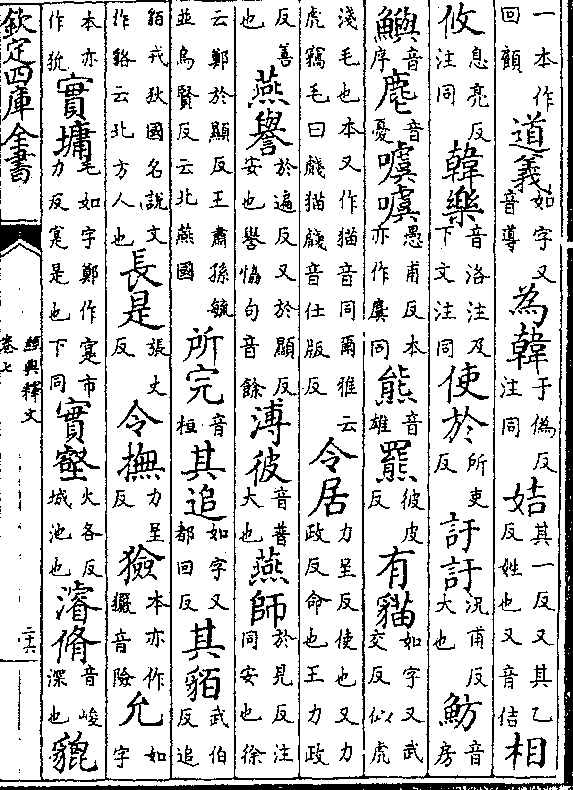 一本作回顧道義如字又音導為韓于偽反注同姞其一反又其乙反姓也又音佶相
攸息亮反注同韓樂音洛注及下文注同使於所吏反訏訏況甫反大也魴音房
鱮音序麀音憂噳噳愚甫反本亦作麌同熊音雄羆彼皮反有貓如字又武交反似虎
淺毛也本又作猫音同爾雅云虎竊毛曰虦猫虦音仕版反令居力呈反使也又力政反命也王力政
反善也燕譽於遍反又於顯反安也譽協句音餘溥彼音普大也燕師於見反注同安也徐
云鄭於顯反王肅孫毓並烏賢反云北燕國所完音桓其追如字又都回反其貊武伯反追
貊戎狄國名說文作貉云北方人也長是張丈反令撫力呈反獫本亦作玁音險允如字
本亦作狁實墉毛如字鄭作寔市力反寔是也下同實壑火各反城池也濬脩音峻深也貔
欽定四庫全書
經典釋文
卷七
二十六